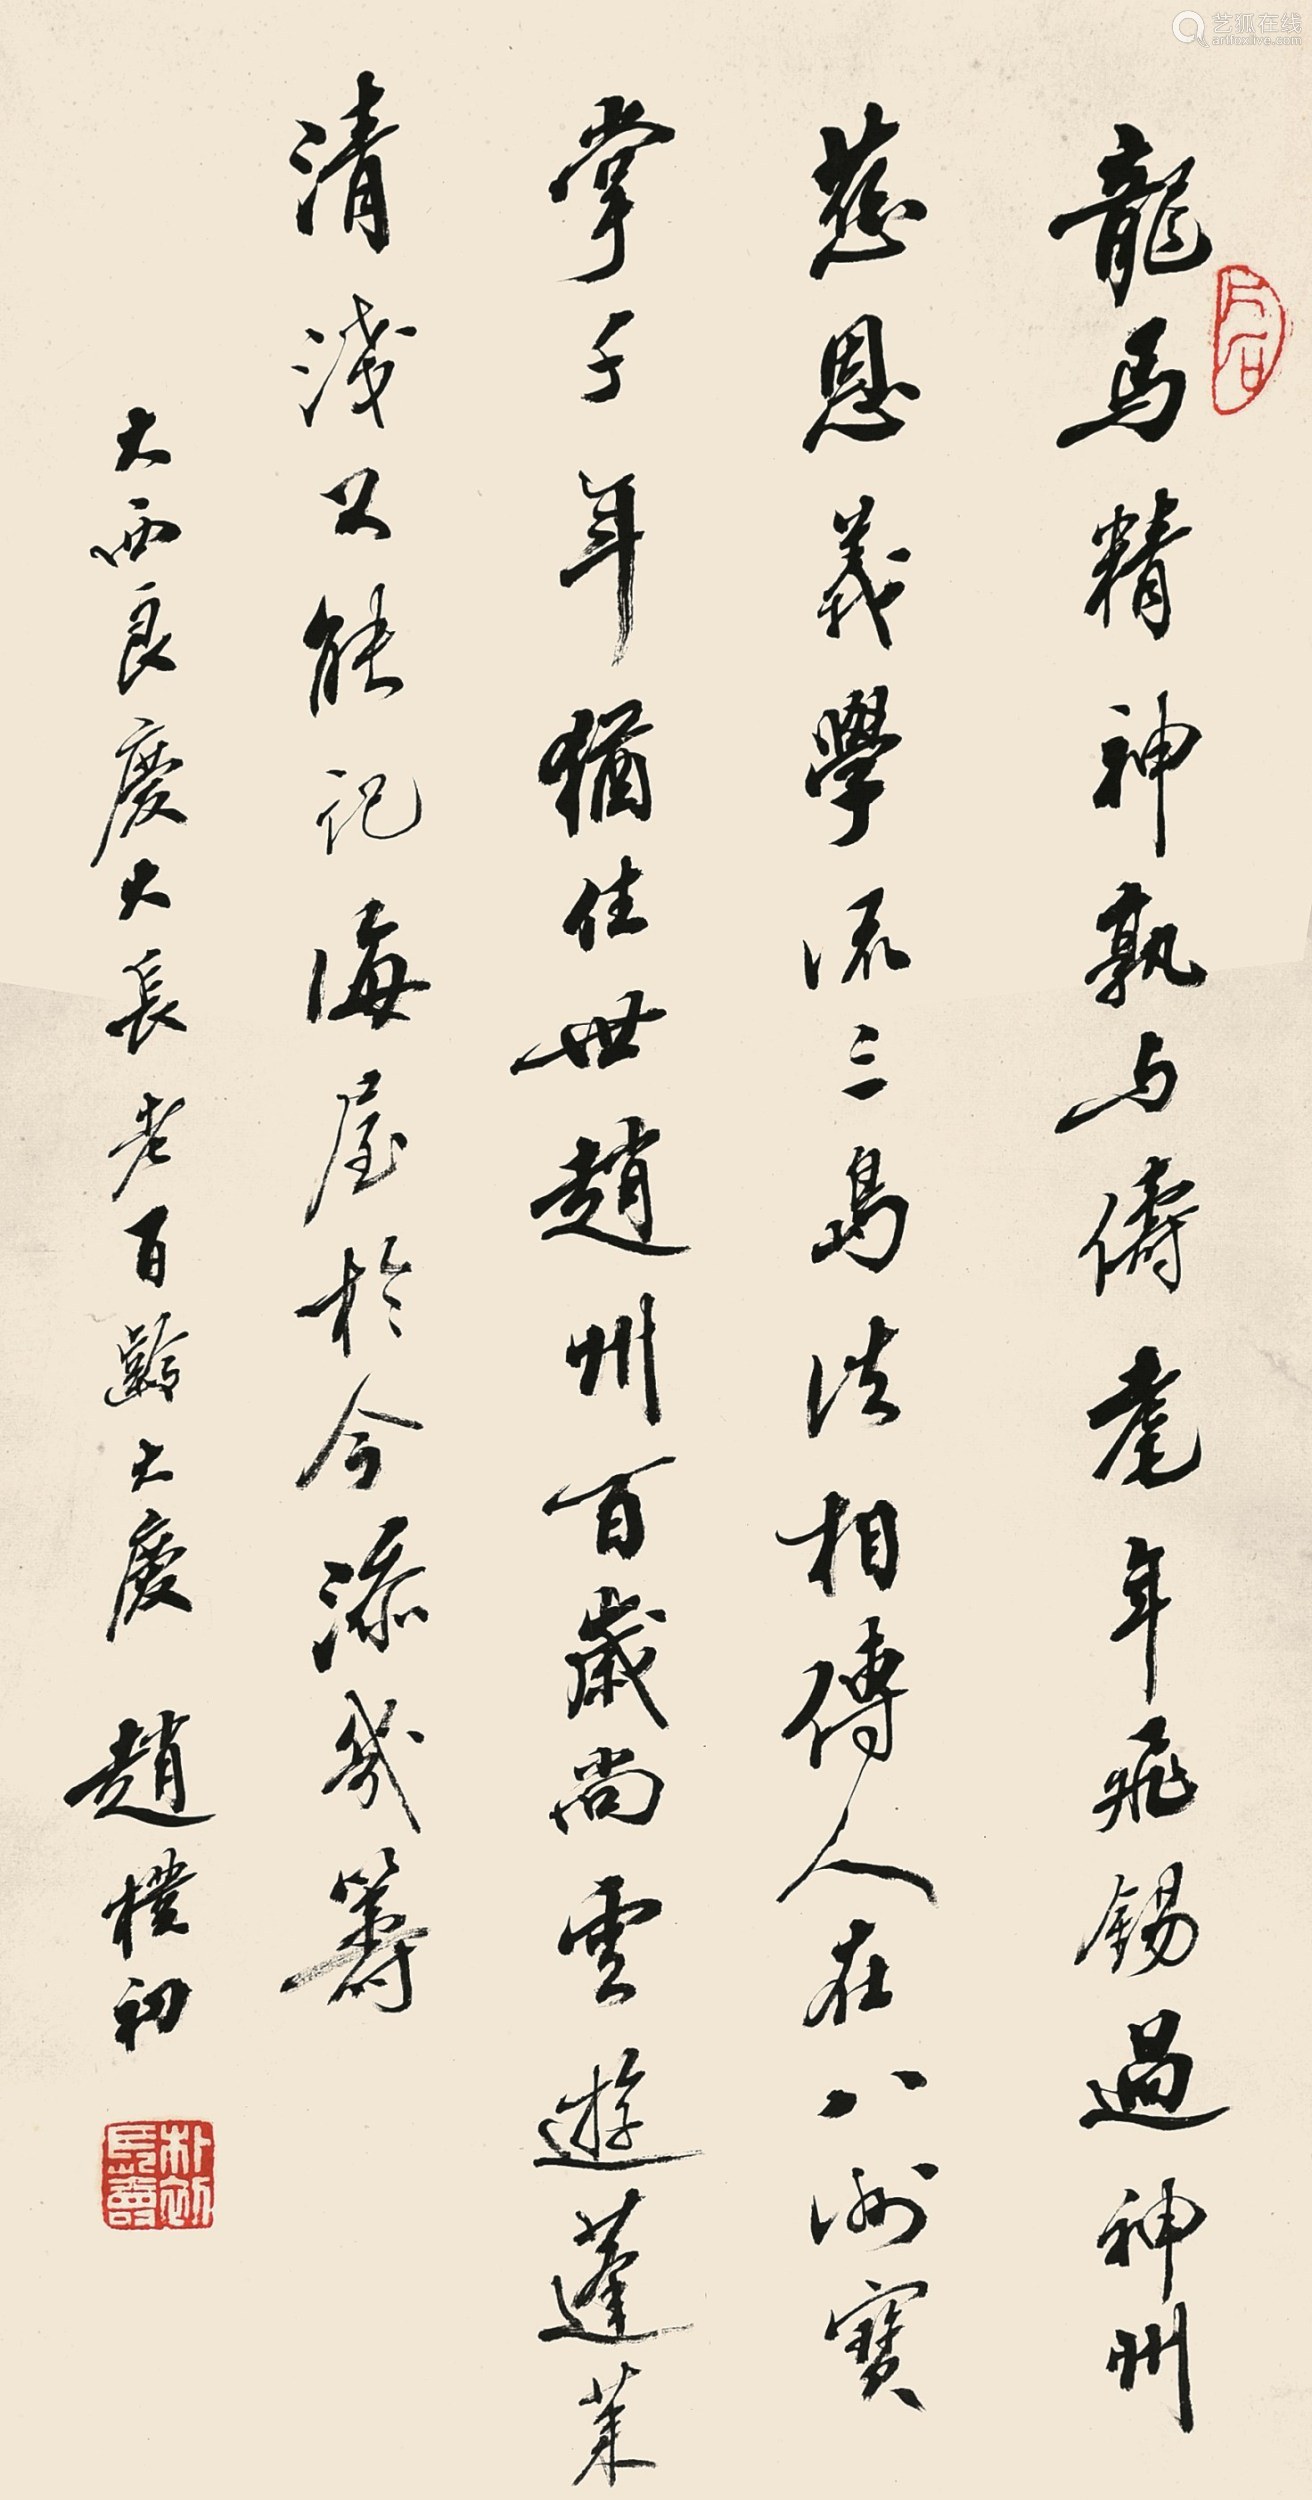 龍馬精神孰与儔耄年飛錫過神州
慈恩義學流三島法相傳人在八洲寶
掌千年猶住世趙州百歲尚雲遊蓬萊
清淺公能記海屋於今添幾籌
大西良慶大長老百齡大慶 趙樸初
朴初長壽
艺狐在线
artfoxlive.com